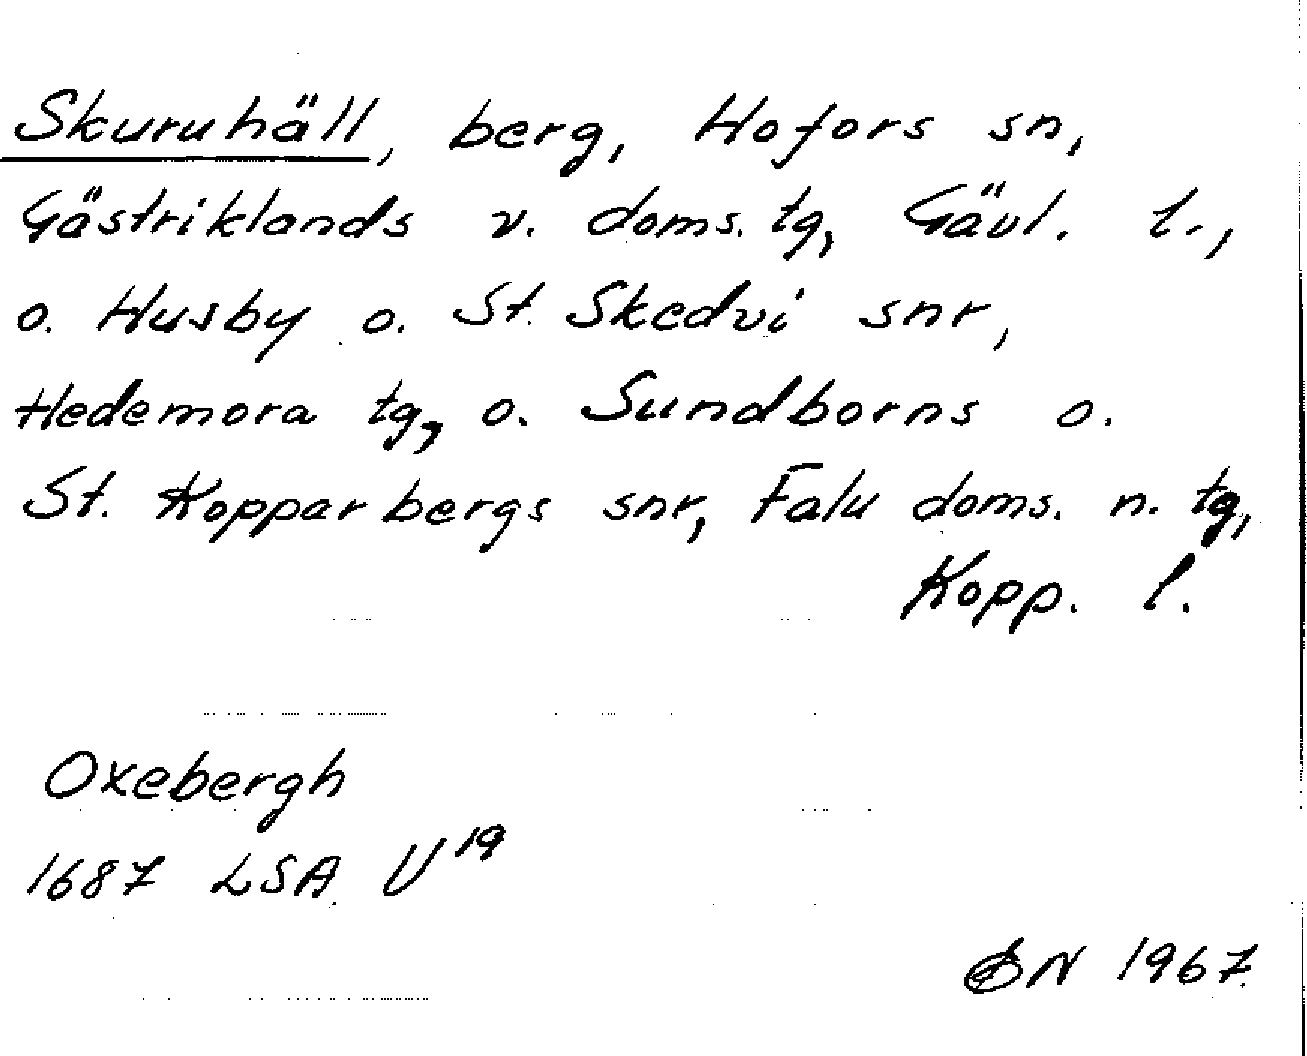 Skuruhäll, berg, Hofors sn,
Gästriklands v. doms. tg, Gävl. l.,
o. Husby o. St. Skedvi snr,
Hedemora tg, o. Sundborns o.
St. Kopparbergs snr, Falu doms. n. tg,
Kopp. l.
Oxebergh
1687 LSA U19
1967